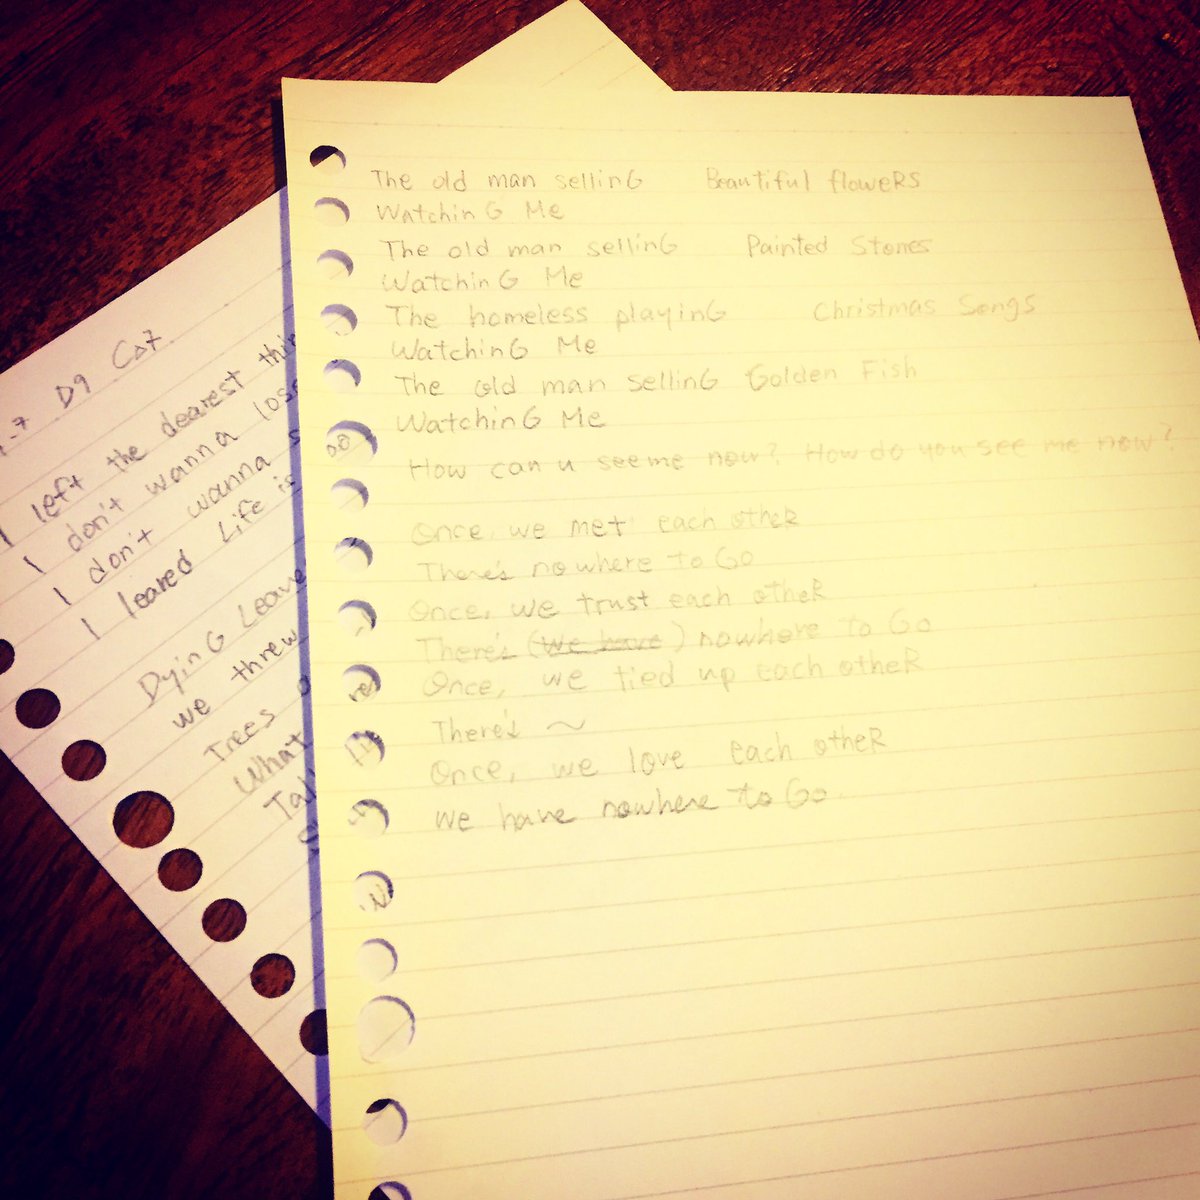 The old man selling Beautiful flowers
Watching Me
The old man selling Painted Stones
Watching Me
The homeless playing Christmas Songs
Watching Me
The old man selling Golden Fish
Watching Me
How can u see me now? How do you see me now?
Once, we met each other
There's nowhere to Go
Once, we trust each other
There's (we have) nowhere to Go
Once, we tied up each other
There's ~
Once, we love each other
we have nowhere to Go.
D9 C△7
I left the dearest
I don't wanna
I don't wanna
I leared Life is
Dying
we threw
Trees
What